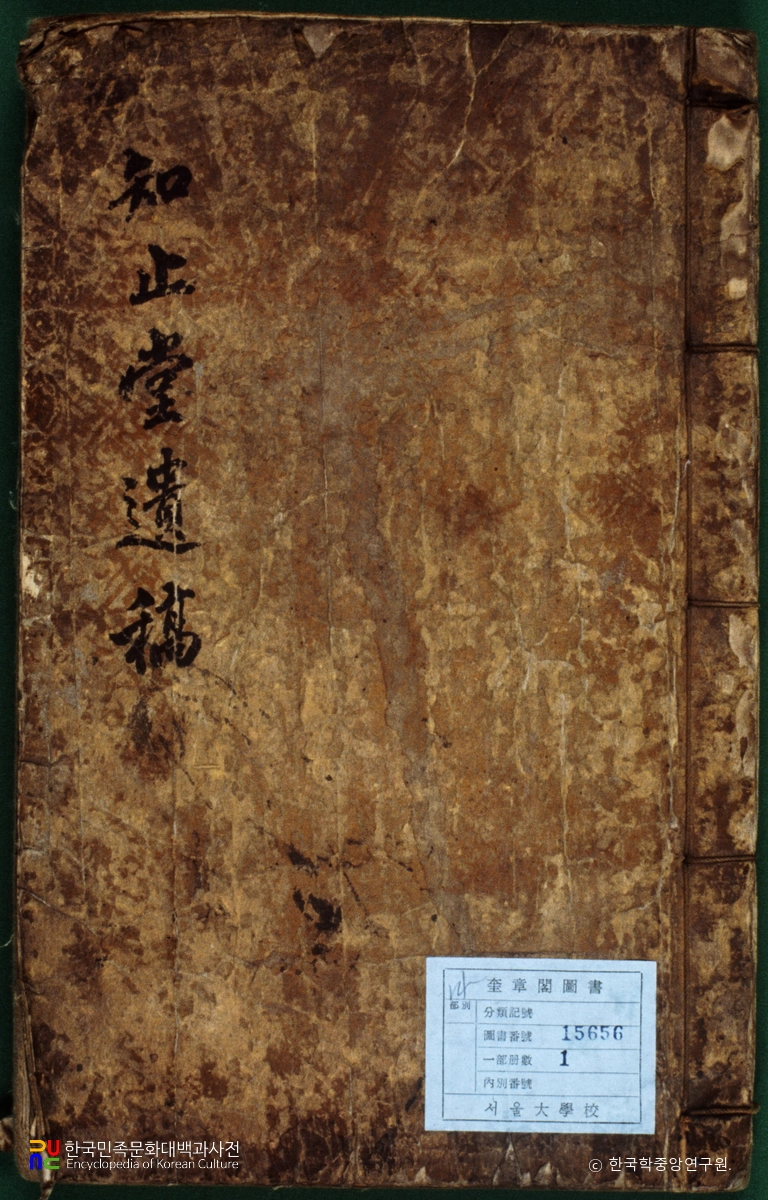 知止堂遺稿
奎章閣圖書
部別
分類記號
圖書番號 15656
一部册數 1
內別番號
서울大學校
한국민족문화대백과사전
Encyclopedia of Korean Culture
© 한국학중앙연구원.